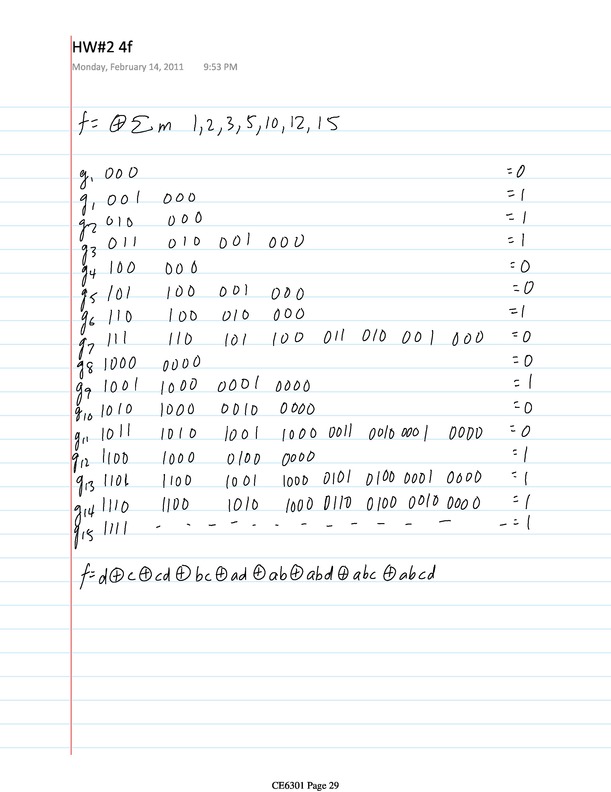 HW#2 4f
Monday, February 14, 2011 9:53 PM
f= ⊕ Σ m 1,2,3,5,10,12,15
g, 000 =0
g1 001 000 =1
g2 010 000 =1
g3 011 010 001 000 =1
g4 100 000 =0
g5 101 100 001 000 =0
g6 110 100 010 000 =1
g7 111 110 101 100 011 010 001 000 =0
g8 1000 0000 =0
g9 1001 1000 0001 0000 =1
g10 1010 1000 0010 0000 =0
g11 1011 1010 1001 1000 0011 0010 0001 0000 =0
g12 1100 1000 0100 0000 =1
g13 1101 1100 1001 1000 0101 0100 0001 0000 =1
g14 1110 1100 1010 1000 0110 0100 0010 0000 =1
g15 1111 - - - - - - - - - - =1
f=d⊕c⊕cd⊕bc⊕ad⊕ab⊕abd⊕abc⊕abcd
CE6301 Page 29